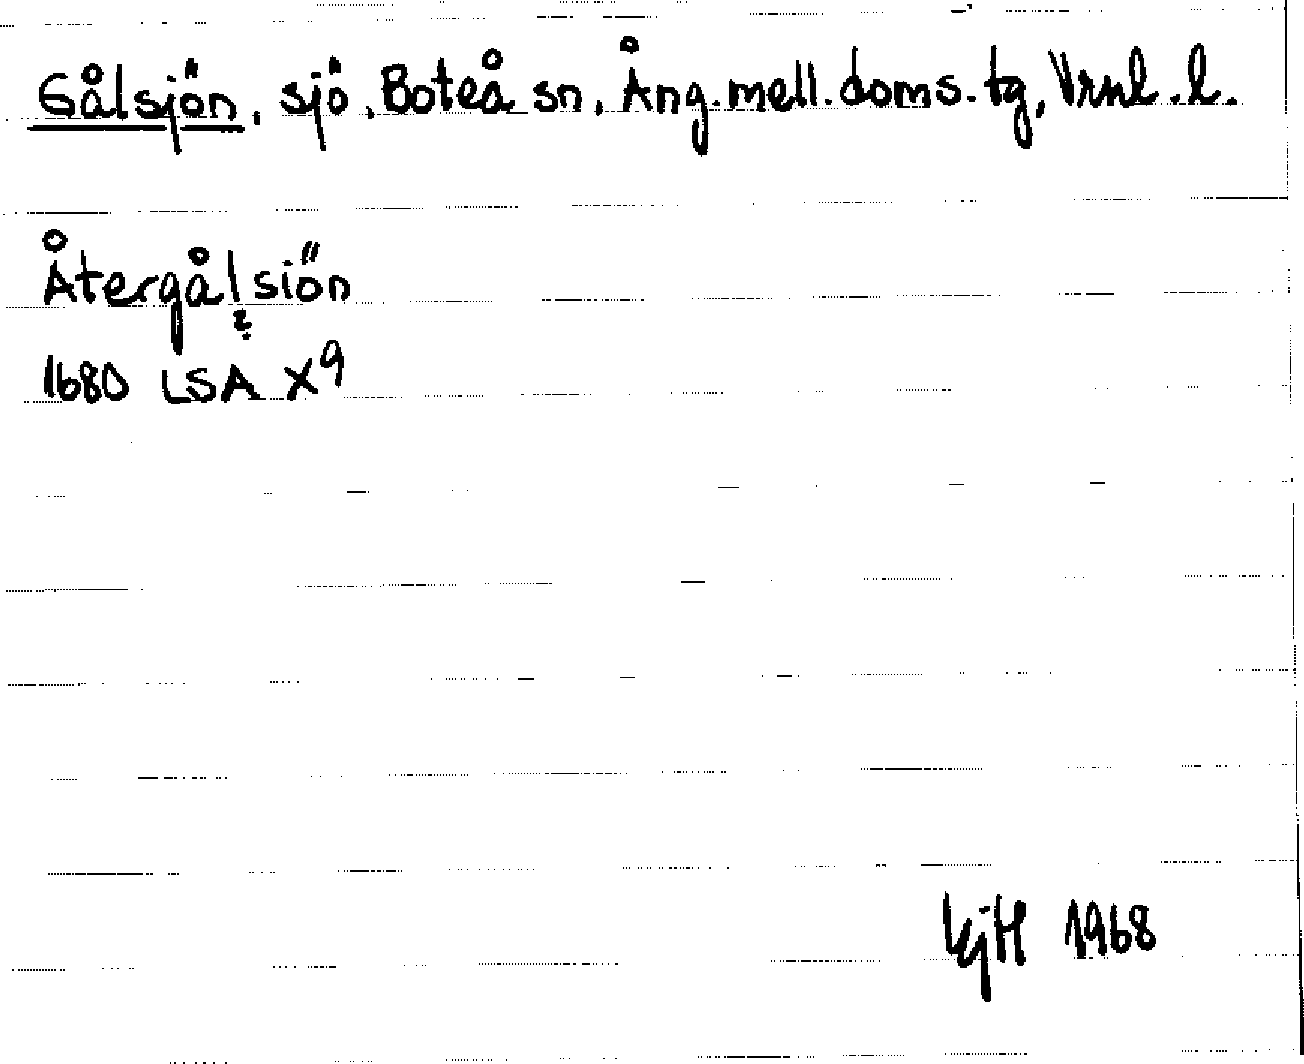 Gålsjön, sjö, Boteå sn, Ång.mell.doms.tg, Vrnl.l.
Återgålsiön
?
1680 LSA X9
KjH 1968